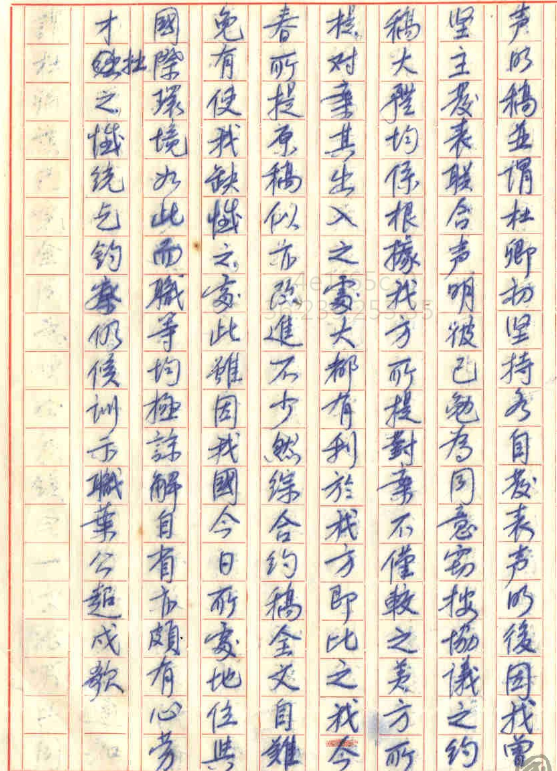 声明稿並謂杜卿初坚持各自发表声明後因我曾
坚主发表联合声明彼已勉为同意窃按協議之約
稿大體均係根據我方所提對案不僅較之美方所
提对案其出入之處大都有利於我方即比之我今
春所提原稿似亦改進不少然綜合約稿全文自難
免有使我缺憾之處此雖因我國今日所處地位與
國際環境如此而職等均極諒解自有亦頗有心勞
才拙之憾统乞鈞察仍候训示職葉公超戌歌